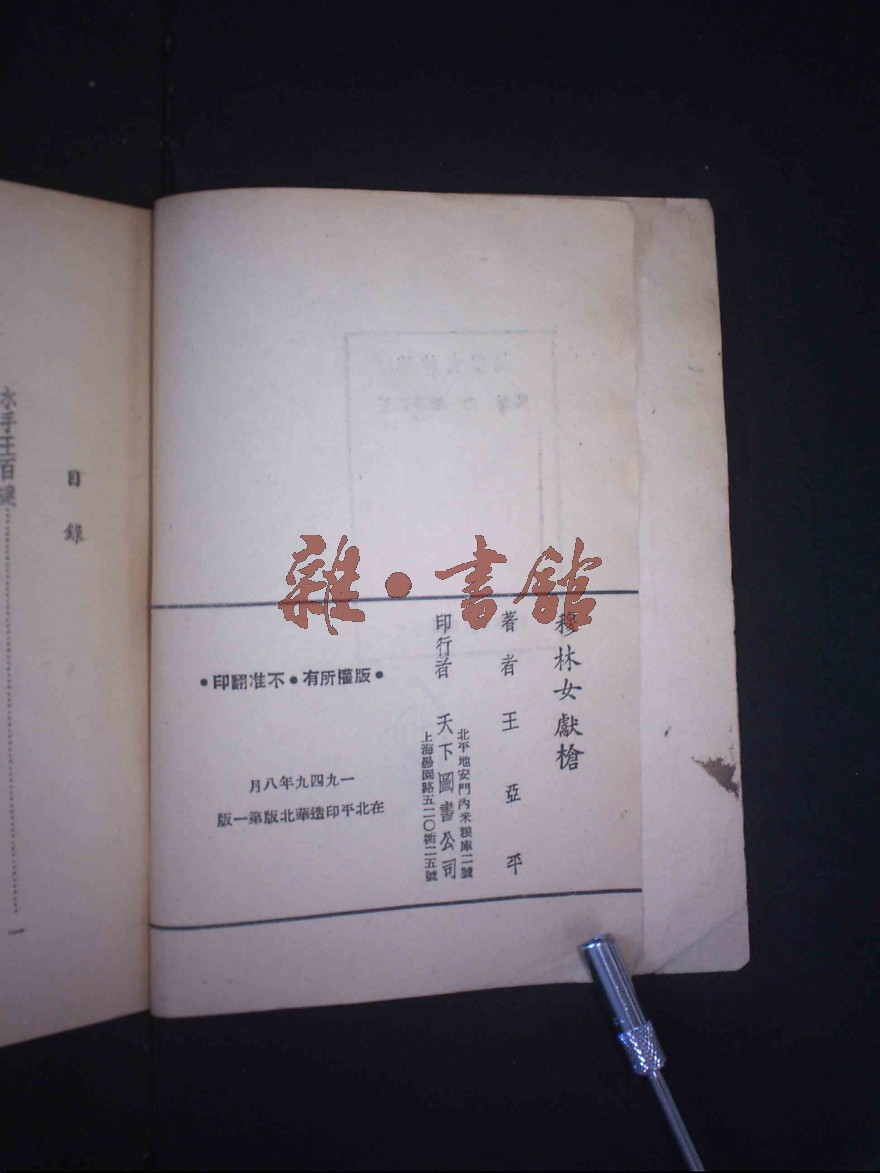 雜·書館
穆林女獻槍
著者 王亞平
印行者 天下圖書公司
北平地安門內米糧庫二號
上海愚園路五二〇衖二五號
•印翻准不•有所權版•
月八年九四九一
版一第北華造印平北在
目錄
水手王百
一